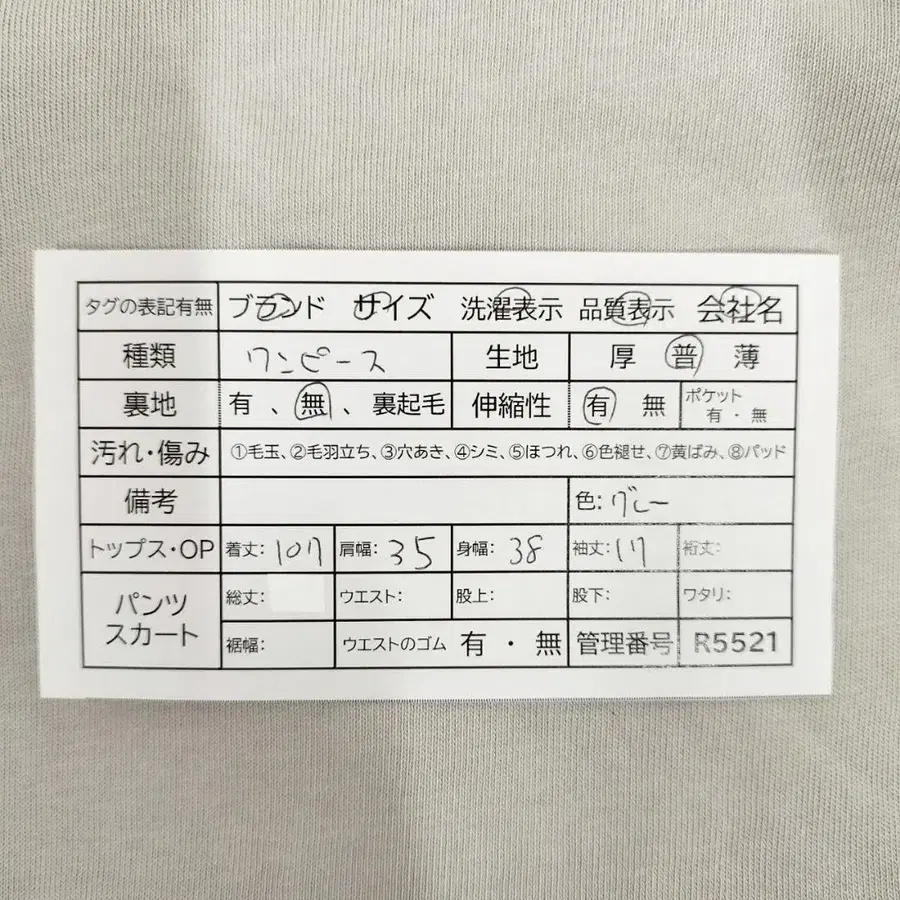 タグの表記有無 ブランド サイズ 洗濯表示 品質表示 会社名
種類 ワンピース 生地 厚 普 薄
裏地 有、無、裏起毛 伸縮性 有 無 ポケット 有・無
汚れ・傷み ①毛玉、②毛羽立ち、③穴あき、④シミ、⑤ほつれ、⑥色褪せ、⑦黄ばみ、⑧パッド
備考 色:グレー
トップス・OP 着丈:107 肩幅:35 身幅:38 袖丈:17 裄丈:
パンツ スカート 総丈: ウエスト: 股上: 股下: ワタリ:
裾幅: ウエストのゴム 有・無 管理番号 R5521